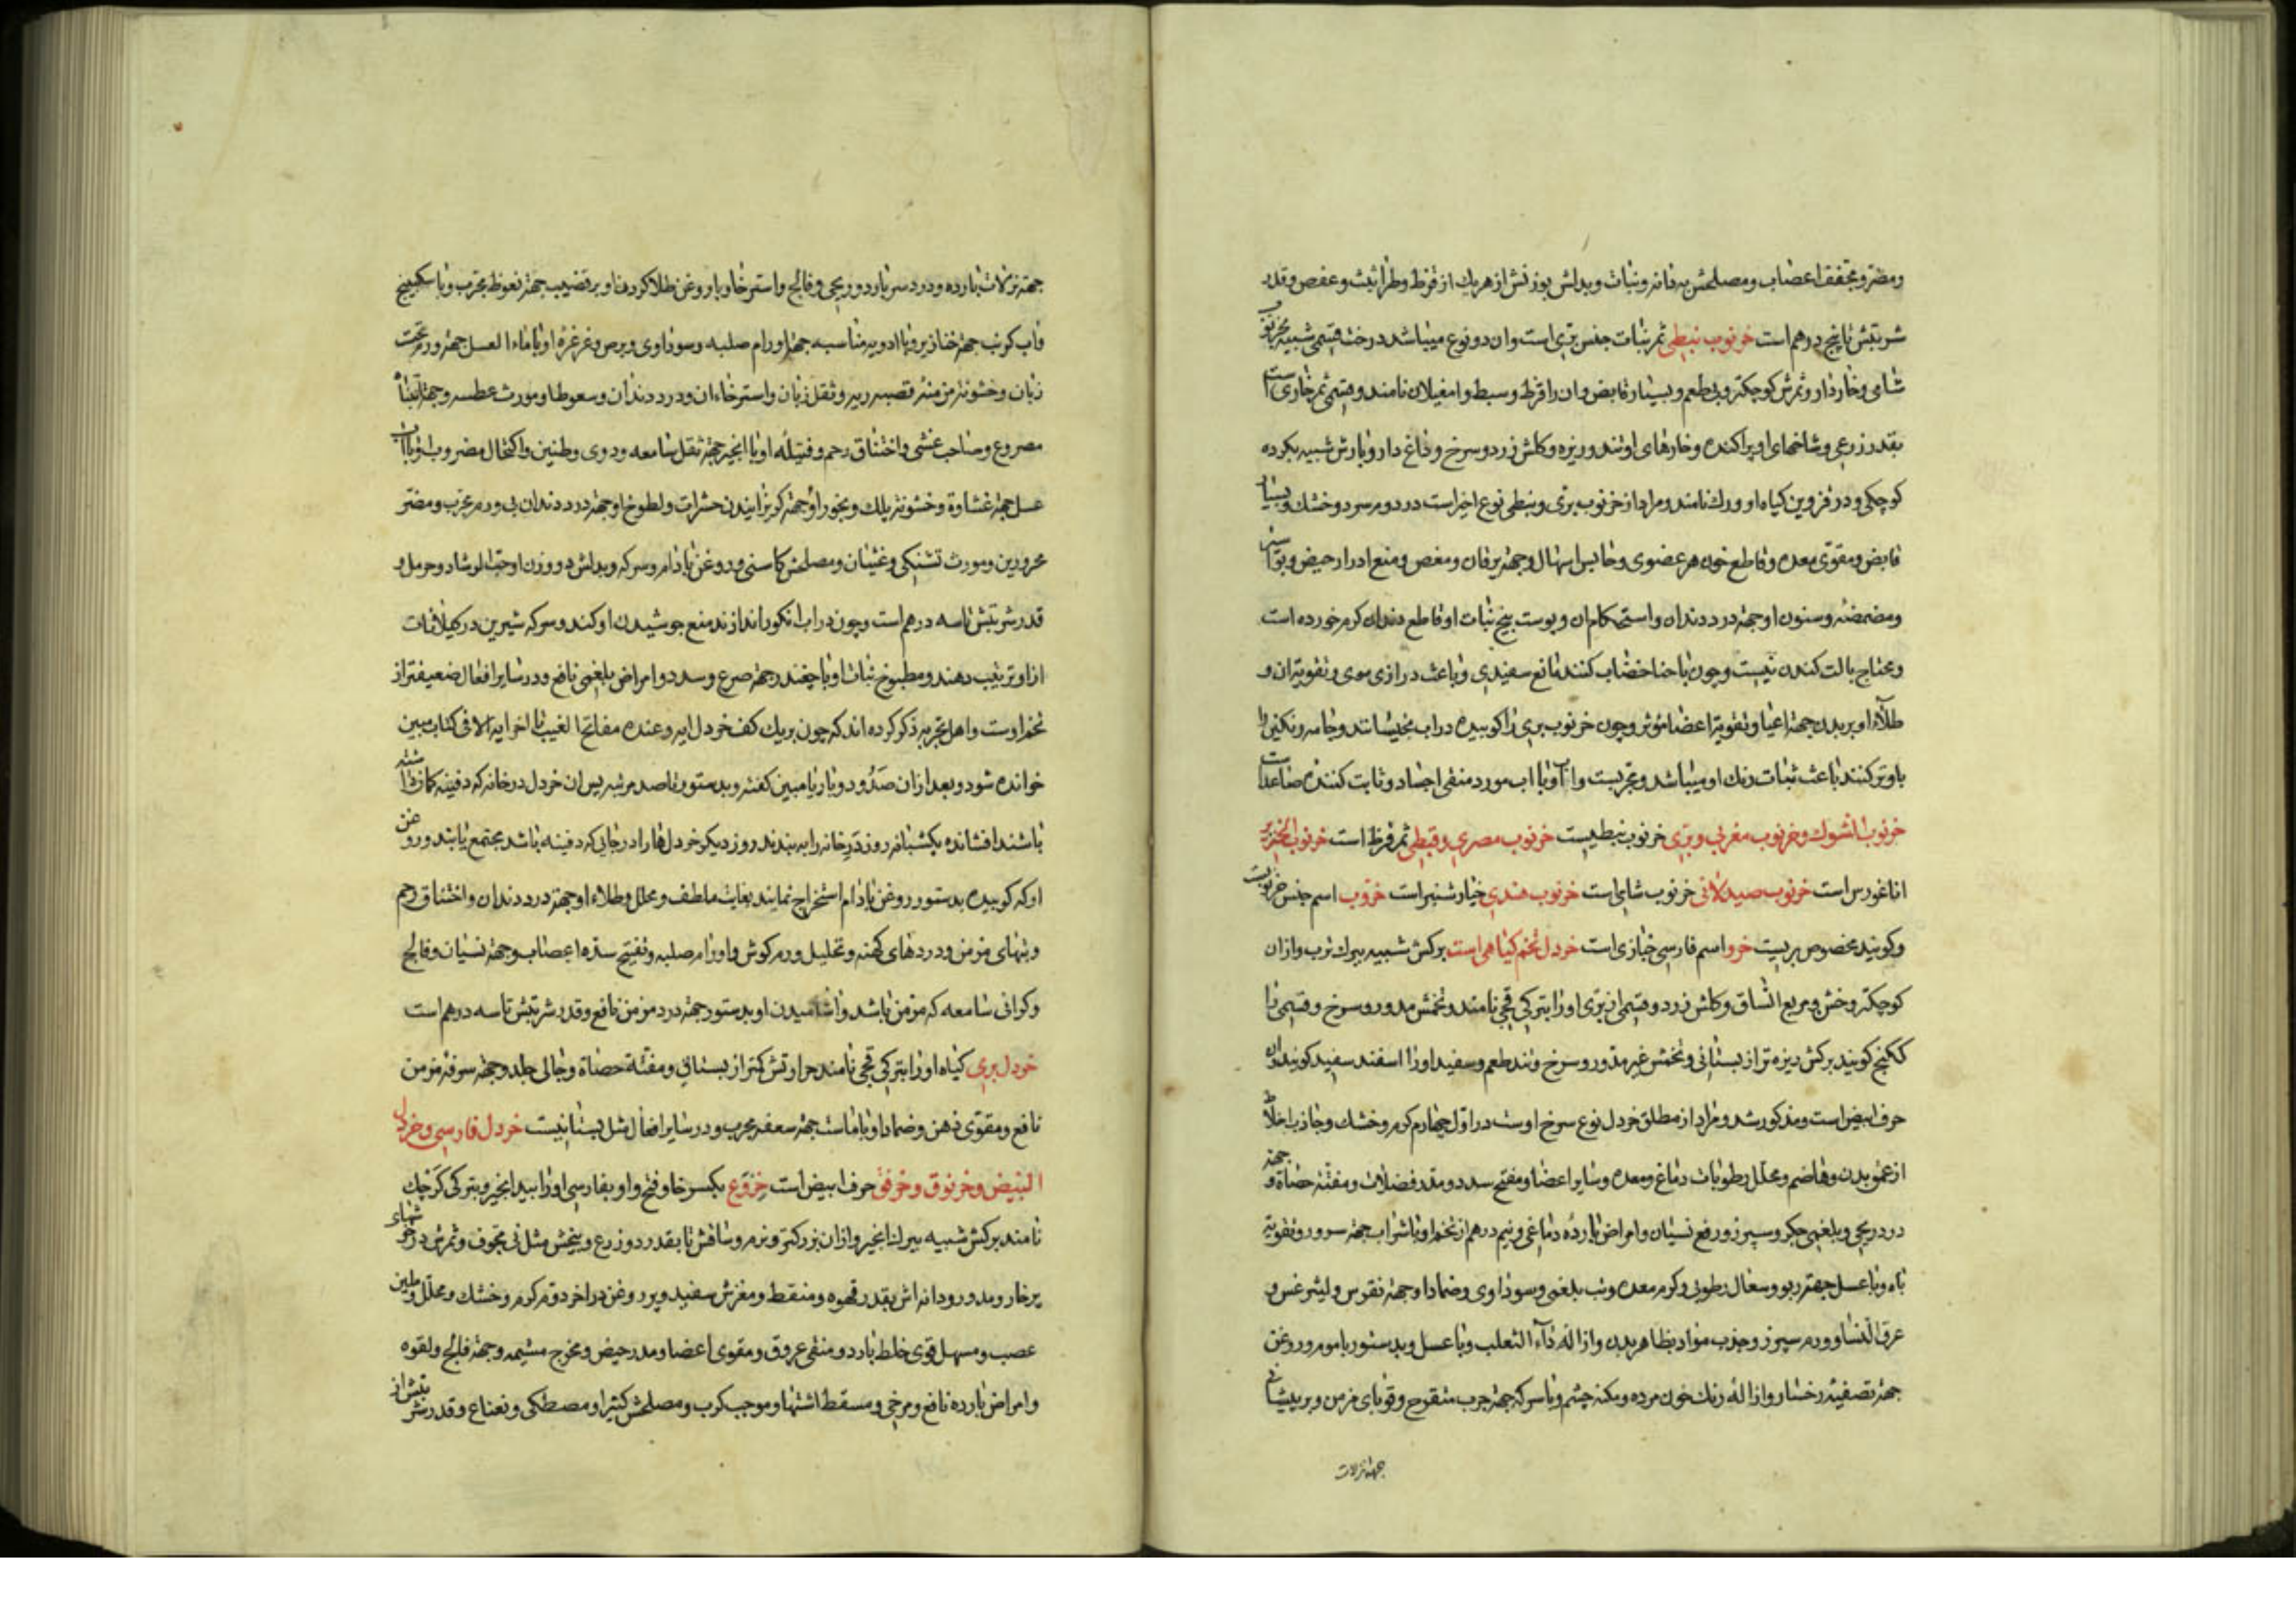 ومضر و مجفف اعضاب ومصلحش بهدانه ونبات وبدلش بوزنش از هریك از قرظ وطراثیث وعفص وقدر
شربتش تا پنج درهم است خرنوب نبطی ثمر نبات جنس بری است وان دو نوع میباشد درخت قسمی شبیه بخرنوب
شامی وخاردار وثمرش کوچکتر وبی طعم وبسیار قابض وان را قرظ وسبط وام غیلان نامند وقسمی ثمر خاری است
بقدر ذرعی وشاخهای او پراکنده وخارهای او تند و ریزه وکلش زرد وسرخ و داغ دار وبارش شبیه بکرده
کوچکی ودر قزوین کیاه او ورك نامند ومراد از خرنوب بری ونبطی نوع اخیر است در دوم سرد وخشك وبسیار
قابض ومقوی معده وقاطع خون هر عضوی وحابس اسهال وجهة یرقان ومغص ومنع ادرار حیض وبواسیر
ومضمضه وسنون او جهة درد دندان واستحکام ان وپوست بیخ نبات او قاطع دندان کرم خورده است
ومحتاج بالت کندن نیست وچون با حنا خضاب کنند مانع سفیدی وباعث درازی موی وتقویة ان و
طلاء او بر بدن جهة اعیا وتقویة اعضا مؤثر وچون خرنوب بری را کوبیده در اب بخیسانند وجامه رنکین را
باو تر کنند باعث ثبات رنك او میباشد ومجربست و او با اب مورد منقی اجساد وثابت کننده صاعدات
خرنوب الشوك وخرنوب مغربی وبری خرنوب نبطیست خرنوب مصری وقبطی ثمر قرظ است خرنوب الخنزیر
اناغورس است خرنوب صیدلانی خرنوب شامی است خرنوب هندی خیار شنبر است خروب اسم جنس خرنوبست
وکویند مخصوص بریست خرو اسم فارسی خبازی است خردل تخم کیاهی است برکش شبیه ببرك ترب وازان
کوچکتر وخشن ومربع الساق وکلش زرد وقسمی از بری او را بترکی قچی نامند وتخمش مدور وسرخ وقسمی را
کنج کویند برکش ریزه تر از بستانی وتخمش غیر مدور وسرخ وتند طعم وسفید او را اسفند سفید کویند وان
حرف ابیض است ومذکور شد ومراد از مطلق خردل نوع سرخ اوست در اول چهارم کرم وخشك وجاذب اخلاط
از عمق بدن وهاضم ومحلل رطوبات دماغ ومعده وسایر اعضا ومفتح سدد ومدر فضلات ومفتته حصاة وجهة
درد ریحی وبلغمی جکر وسپرز ورفع نسیان وامراض بارده دماغی ونیم درهم از تخم او با شراب جهة سرور وتقویة
باه وبا عسل جهة ربو وسعال رطوبی وکرم معده وتب بلغمی وسوداوی وضماد او جهة نقرس ولیثرغس و
عرق النسا وورم سپرز وجذب مواد بظاهر بدن وازاله داء الثعلب وبا عسل وبدستور با موم وروغن
جهة تصفیه رخسار وازاله رنك خون مرده ومکنه چشم وبا سرکه جهة جرب متقرح وقوبای مزمن وبر پیشانی
جهة نزلات
جهة نزلات بارده ودرد سر بارد وریحی وفالج واسترخا وبا روغن طلا کردن او بر قضیب جهة نعوظ مجرب وبا سکبینج
واب کرنب جهة خنازیر وبا ادویه مناسبه جهة اورام صلبه وسوداوی وبرص وغرغره او با ماء العسل جهة ورم تحت
زبان وخشونة مزمنه قصبه ریه وثقل زبان واسترخاء ان ودرد دندان وسعوط او مورث عطسه وجهة انتباه
مصروع وصاحب غشی واختناق رحم وفتیله او با انجیر جهة ثقل سامعه ودوی وطنین واکتحال مضروب او با اب
عسل جهة غشاوة وخشونة پلك وبخور او جهة کریزانیدن حشرات ولطوخ او جهة درد دندان بی ورم مجرب ومضر
محرورین ومورث تشنکی وغثیان ومصلحش کاسنی وروغن بادام وسرکه وبدلش دو وزن او حب الرشاد وحرمل و
قدر شربتش تا سه درهم است وچون در اب انکور اندازند منع جوشیدن او کند وسرکه شیرین در
از او ترتیب دهند ومطبوخ نبات او با چغندر جهة صرع وسدد وامراض بلغمی نافع ودر سایر افعال ضعیفتر از
تخم اوست واهل تجربه ذکر کرده اند که چون بر یك کف خردل ایه وعنده مفاتح الغیب تا اخر ایه الا فی کتاب مبین
خوانده شود وبعد ازان دو بار یا مبین کفته وبدستور تا صد مرتبه پس ان خردل در خانه که دفینه کمان داشته
باشند افشانده یکشبانه روز در خانه را به بندند روز دیکر خردل ها را در جایی که دفینه باشد مجتمع یابند وروغن
او که کوبیده بدستور روغن بادام استخراج نمایند بغایت ملطف ومحلل وطلاء او جهة درد دندان واختناق رحم
وتبهای مزمن ودردهای کهنه وتحلیل ورم کوش واورام صلبه وتفتیح سده اعصاب وجهة نسیان وفالج
وکرانی سامعه که مزمن باشد واشامیدن او بدستور جهة درد مزمن نافع وقدر شربتش تا سه درهم است
خردل بری کیاه او را بترکی قچی نامند حرارتش کمتر از بستانی ومفتته حصاة وجالی جلد وجهة سرفه مزمن
نافع ومقوی ذهن وضماد او با ماست جهة سعفه مجرب ودر سایر افعال مثل بستانیست خردل فارسی وخردل
ابیض وخرنوق وخرفق حرف ابیض است خروع بکسر خا وفتح واو بفارسی او را بیدانجیر وبترکی کرچك
نامند برکش شبیه ببرك انجیر وازان بزرکتر ونرم وساقش تا بقدر دو ذرع وبیخش مثل نی مجوف وثمرش در خوشهای
پرخار ومدور ودانه اش بقدر قهوه ومنقط ومغزش سفید وپر روغن در اخر دوم کرم وخشك ومحلل وملین
عصب ومسهل قوی خلط بارد ومنقی عروق ومقوی اعضا ومدر حیض ومخرج مشیمه وجهة فالج ولقوه
وامراض بارده نافع ومرخی ومسقط اشتها وموجب کرب ومصلحش کتیرا ومصطکی ونعناع وقدر شربتش از